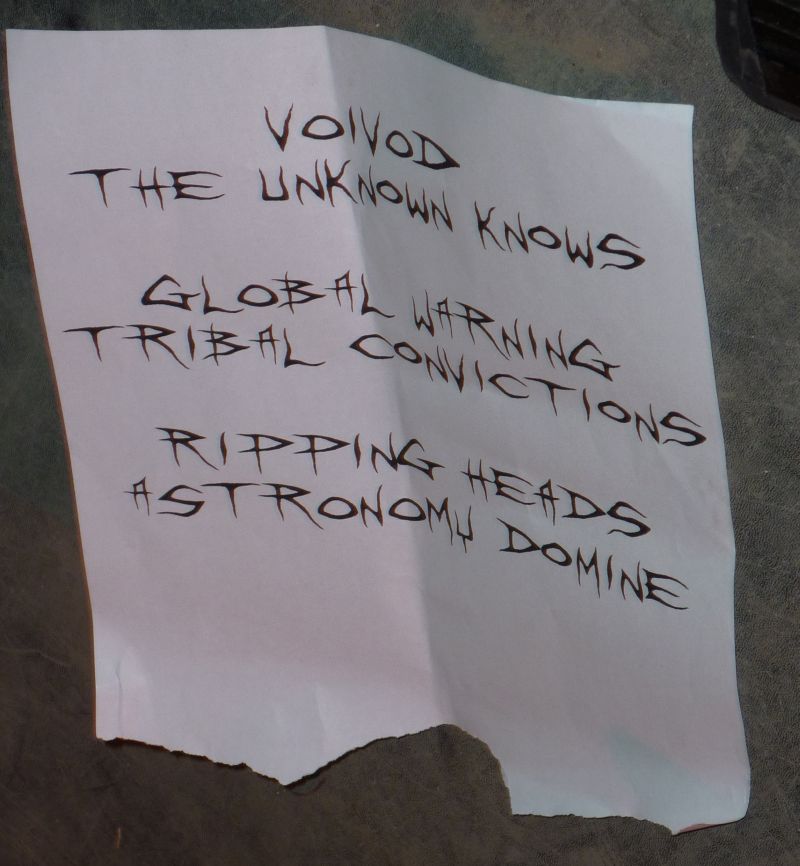 VOIVOD
THE UNKNOWN KNOWS
GLOBAL WARNING
TRIBAL CONVICTIONS
RIPPING HEADS
ASTRONOMY DOMINE